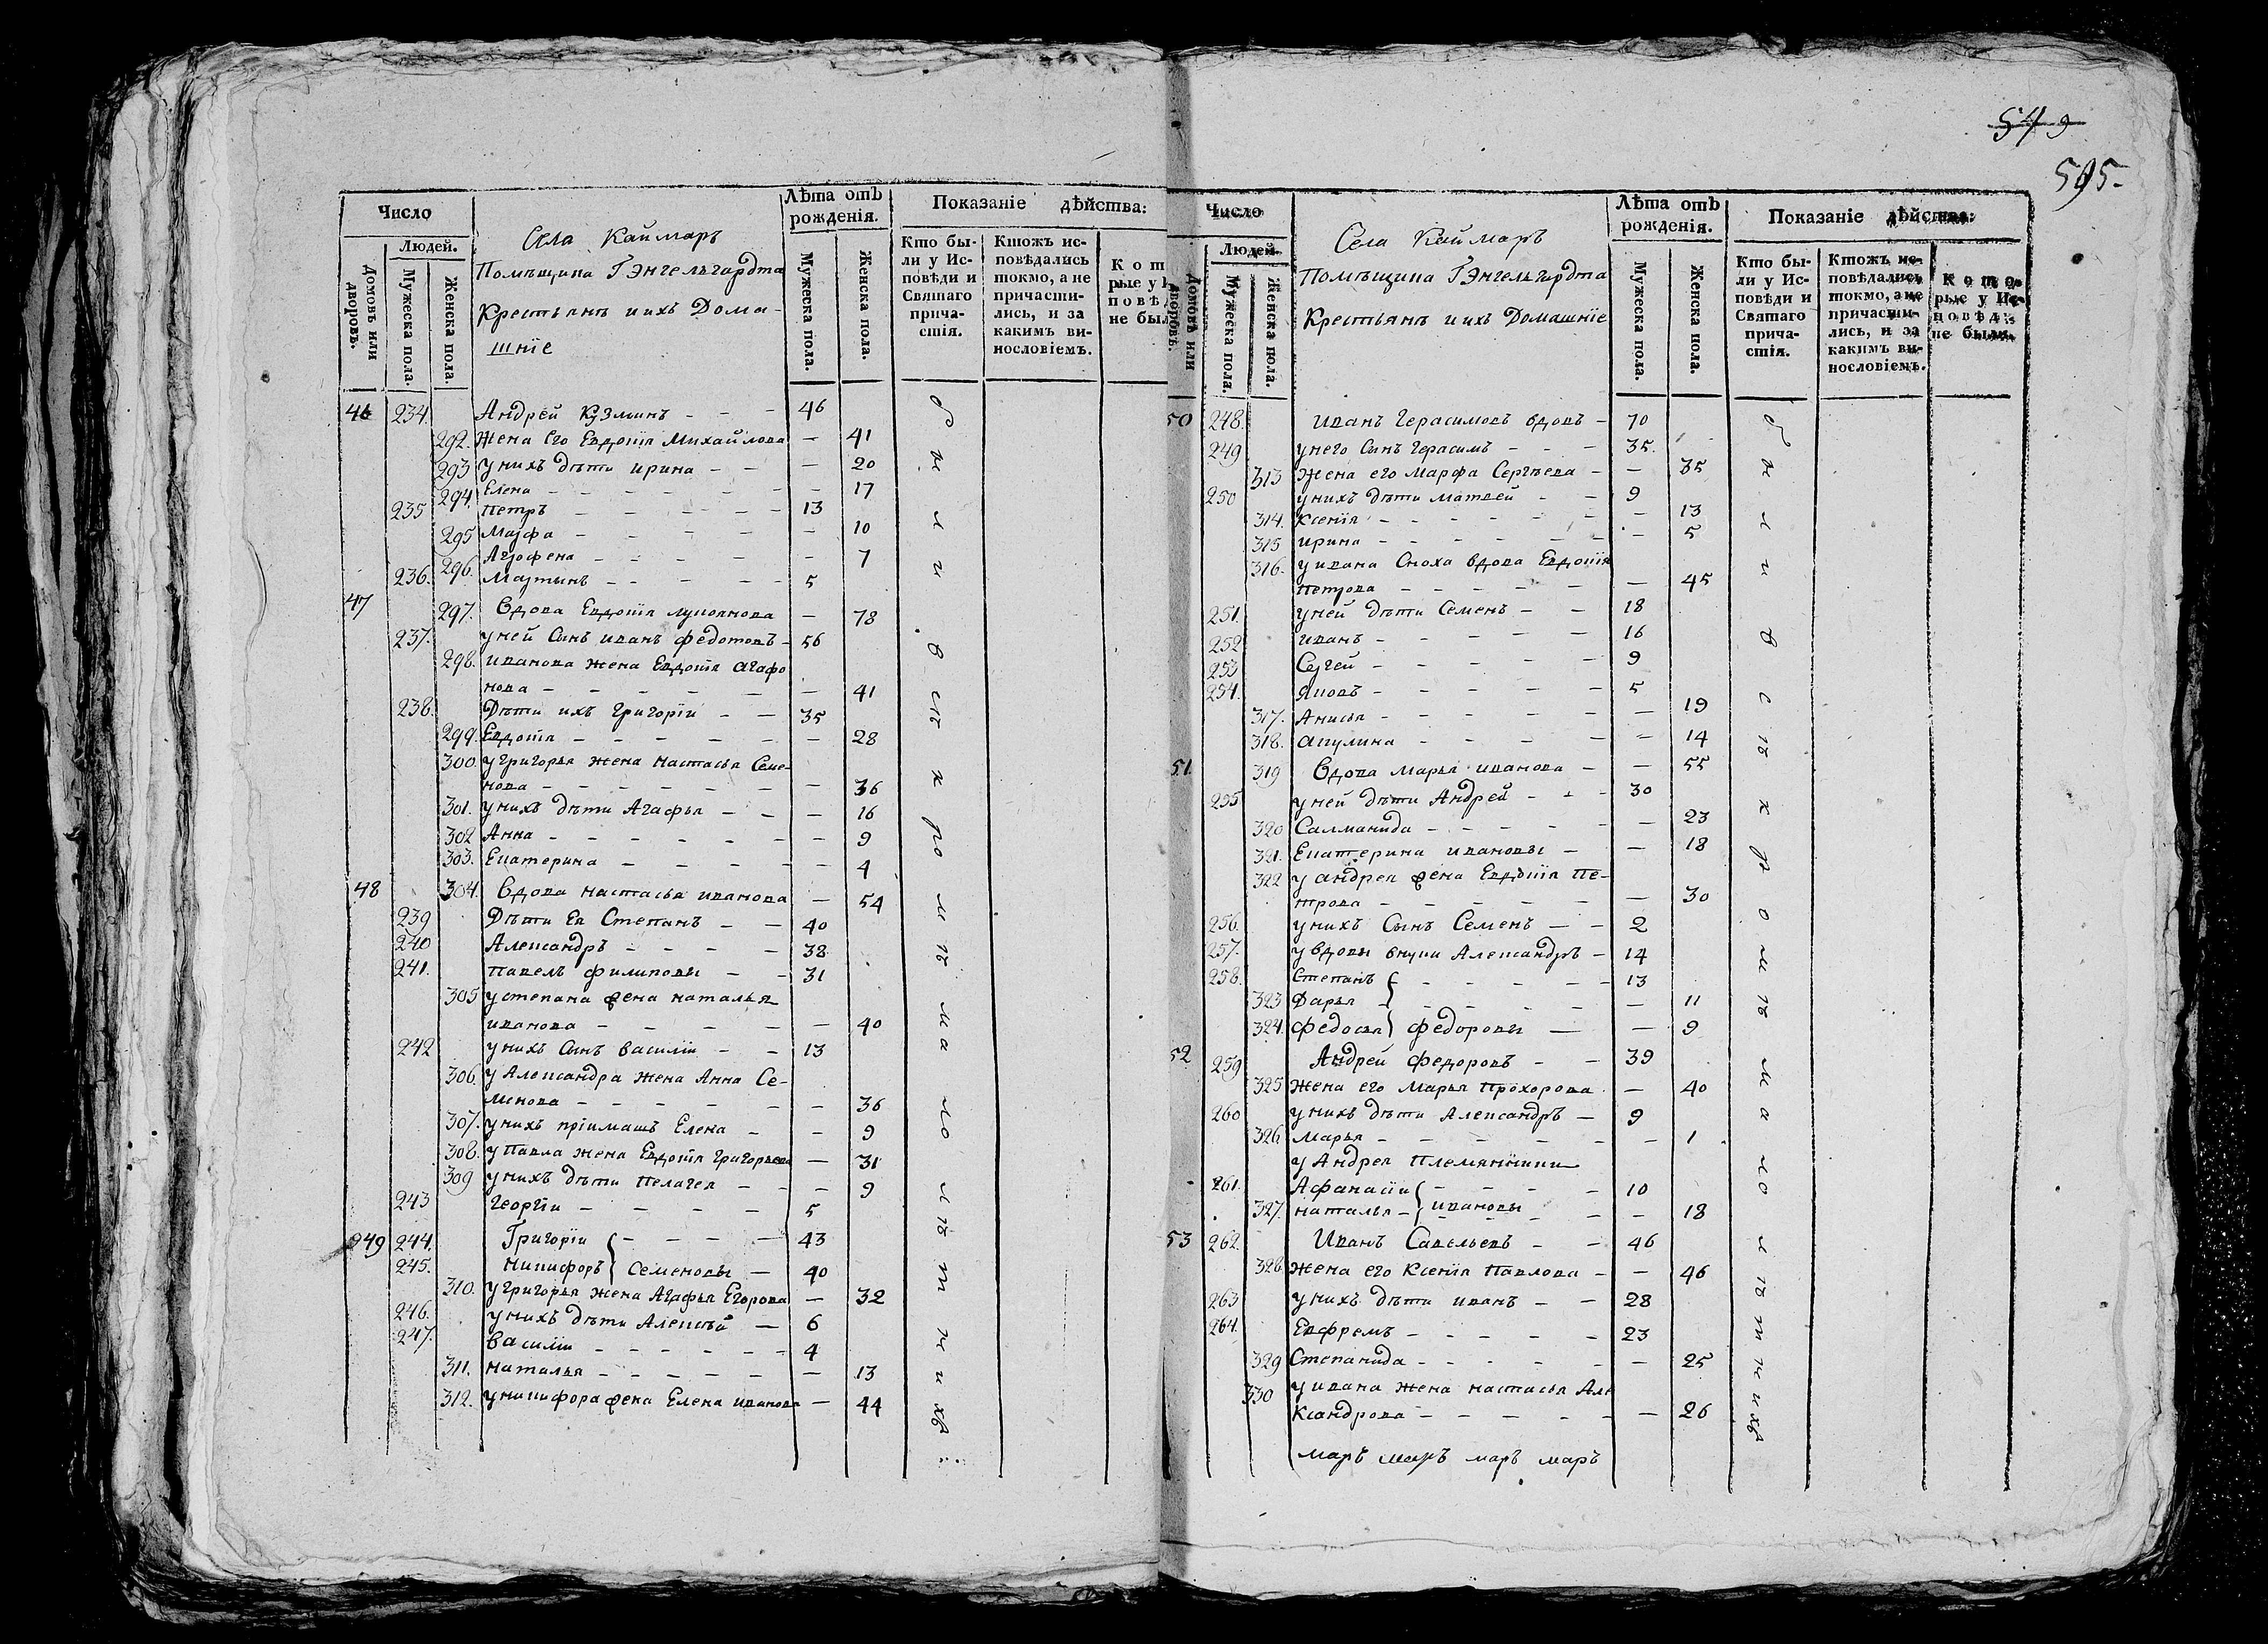 549
595.
Число
Людей.
Домовъ или дворовъ.
Мужеска пола.
Женска пола.
Села Каймаръ
Помѣщика Гэнгельгардта
Крестьянъ и ихъ Дома-
шніе
Лѣта отъ рожденія.
Мужеска пола.
Женска пола.
Показаніе дѣйства:
Кто бы-
ли у Ис-
повѣди и
Святаго
прича-
стія.
Ктожъ ис-
повѣдались
токмо, а не
причасти-
лись, и за
какимъ ви-
нословіемъ.
46 234. Андрей Кузминъ - - - 46
292. Жена его Евдокія Михайлова - 41
293 у нихъ дѣти Ирина - - - 20
294. Елена - - - - 17
235 Петръ - - - - 13
295 Марфа - - - - 10
296. Агрофена - - - - 7
236. Мартынъ - - - - 5
47 297. Вдова Евдокія Лукоянова - 78
237. у ней Сынъ Иванъ Федотовъ - 56
298. Иванова жена Евдокія Агафо
нова - - - - 41
238. Дѣти ихъ Григорій - - 35
299. Евдокія - - - - 28
300. у Григорья жена Настасья Семе-
нова - - - - 36
301. у нихъ дѣти Агафья - - - 16
302 Анна - - - - 9
303. Екатерина - - - - 4
48 304. Вдова Настасья Иванова - 54
239 Дѣти ея Степанъ - - 40
240 Александръ - - - - 38
241. Павелъ Филиповы - - 31
305 у Степана жена Наталья
Иванова - - - - 40
242 у нихъ Сынъ Василій - - 13
306. у Александра жена Анна Се-
менова - - - - 36
307. у нихъ пріимашъ Елена - - 9
308. у Павла жена Евдокія Григорьева - 31
309 у нихъ дѣти Пелагея - - - 9
243 Георгій - - - - 5
249 244. Григорій - - - - 43
245. Никифоръ } Семеновы - 40
310. у Григорья жена Агафья Егорова - 32
246. у нихъ дѣти Алексѣй - 6
247. Василій - - - - 4
311. Наталья - - - - 13
312. у Никифора жена Елена Иванова - 44
Число
Людей.
Домовъ или дворовъ.
Мужеска пола.
Женска пола.
Села Каймаръ
Помѣщика Гэнгельгардта
Крестьянъ и ихъ Домашніе
Лѣта отъ рожденія.
Мужеска пола.
Женска пола.
Показаніе дѣйства:
Кто бы-
ли у Ис-
повѣди и
Святаго
прича-
стія.
Ктожъ ис-
повѣдались
токмо, а не
причасти-
лись, и за
какимъ ви-
нословіемъ.
Кото-
рые у Ис-
повѣди
не были.
50 248. Иванъ Герасимовъ вдовъ - 70
249 у него Сынъ Герасимъ - - - 35.
313 Жена его Марфа Сергѣева - - 35
250 у нихъ дѣти Матвей - - 9
314. Ксенія - - - - 13
315 Ирина - - - - 5
316. у Ивана Сноха вдова Евдокія
Петрова - - - - 45
251. у ней дѣти Семенъ - - 18
252 Иванъ - - - - 16
253 Сергей - - - - 9
254. Яковъ - - - - 5
317. Анисья - - - - 19
318. Акулина - - - - 14
51. 319 Вдова Марья Иванова - - 55
255 у ней дѣти Андрей - - - 30
320 Салманида - - - - 23
321. Екатерина Ивановы - - 18
322 у Андрея жена Евдокія Пе-
трова - - - - 30
256. у нихъ Сынъ Семенъ - - 2
257. у вдовы внуки Александръ - 14
258. Степанъ - - - - 13
323 Дарья - - - - 11
324. Федосья } Федоровы - - 9
52 259 Андрей Федоровъ - - 39
325 Жена его Марья Прохорова - 40
260 у нихъ дѣти Александръ - 9
326 Марья - - - - 1
у Андрея Племянники
261. Афанасіи - - - - 10
327. Наталья - } Ивановы - - 18
53 262. Иванъ Савельевъ - - 46
328. Жена его Ксенія Павлова - - 46
263 у нихъ дѣти Иванъ - - 28
264. Евфремъ - - - - 23
329 Степанида - - - - 25
330 у Ивана жена Настасья Але
ксандрова - - - - 26
маръ маръ маръ маръ